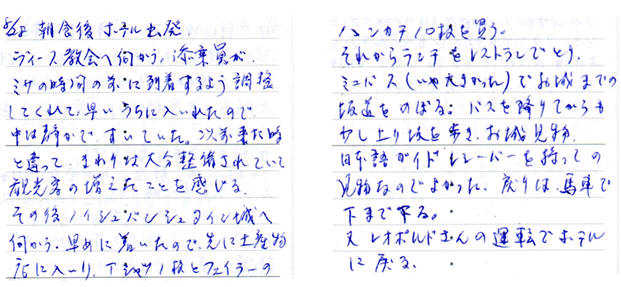 5/28 朝食後ホテル出発
ヴィース教会へ向かう。添乗員が
ミサの時間の前に到着するよう調整
してくれて、早いうちに入いれたので
中は静かで、すいていた。以前来た時
と違って、まわりは大分整備されていて
観光客の増えたことを感じる。
その後ノイシュバンシュタイン城へ
向かう。早めに着いたので、先に土産物
店に入いり、Tシャツ1枚とフェイラーの
ハンカチ10枚を買う。
それからランチをレストランでとり、
ミニバス(いや大きかった)でお城までの
坂道をのぼる。バスを降りてからも
少し上り坂を歩き、お城見物。
日本語ガイドレシーバーを持っての
見物なのでよかった。戻りは、馬車で
下まで下る。
又レオポルドさんの運転でホテル
に戻る。